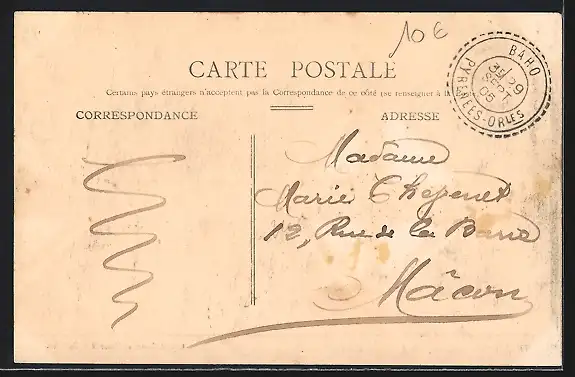 10 €
CARTE POSTALE
Certains pays étrangers n'acceptent pas la Correspondance de ce côté (se renseigner à la
CORRESPONDANCE
ADRESSE
BAHO
29
05
PYRÉNÉES-ORLES
Madame
Marie
12, Rue de la Barre
Mâcon